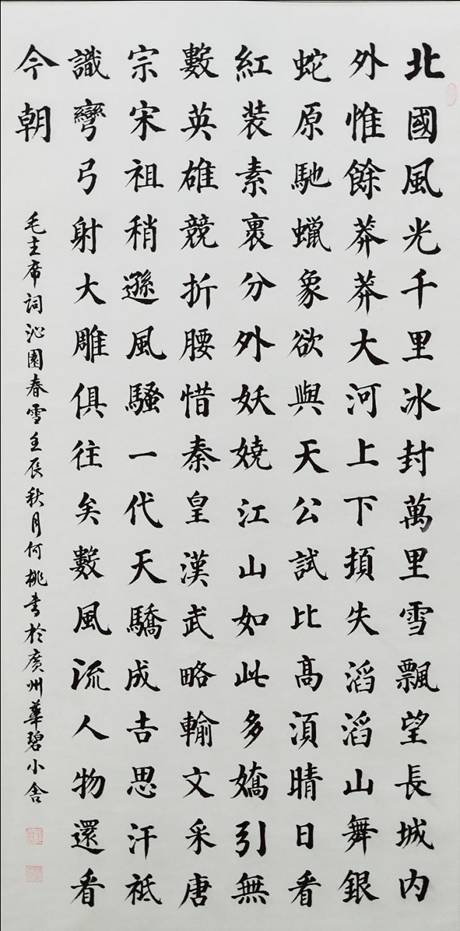 北國風光千里冰封萬里雪飄望長城内
外惟餘莽莽大河上下頓失滔滔山舞銀
蛇原馳蠟象欲與天公試比高須晴日看
紅装素裹分外妖嬈江山如此多嬌引無
數英雄競折腰惜秦皇漢武略輸文采唐
宗宋祖稍遜風騷一代天驕成吉思汗祗
識彎弓射大雕俱往矣數風流人物還看
今朝
毛主席詞沁園春雪壬辰秋月何桃書於廣州華碧小舍